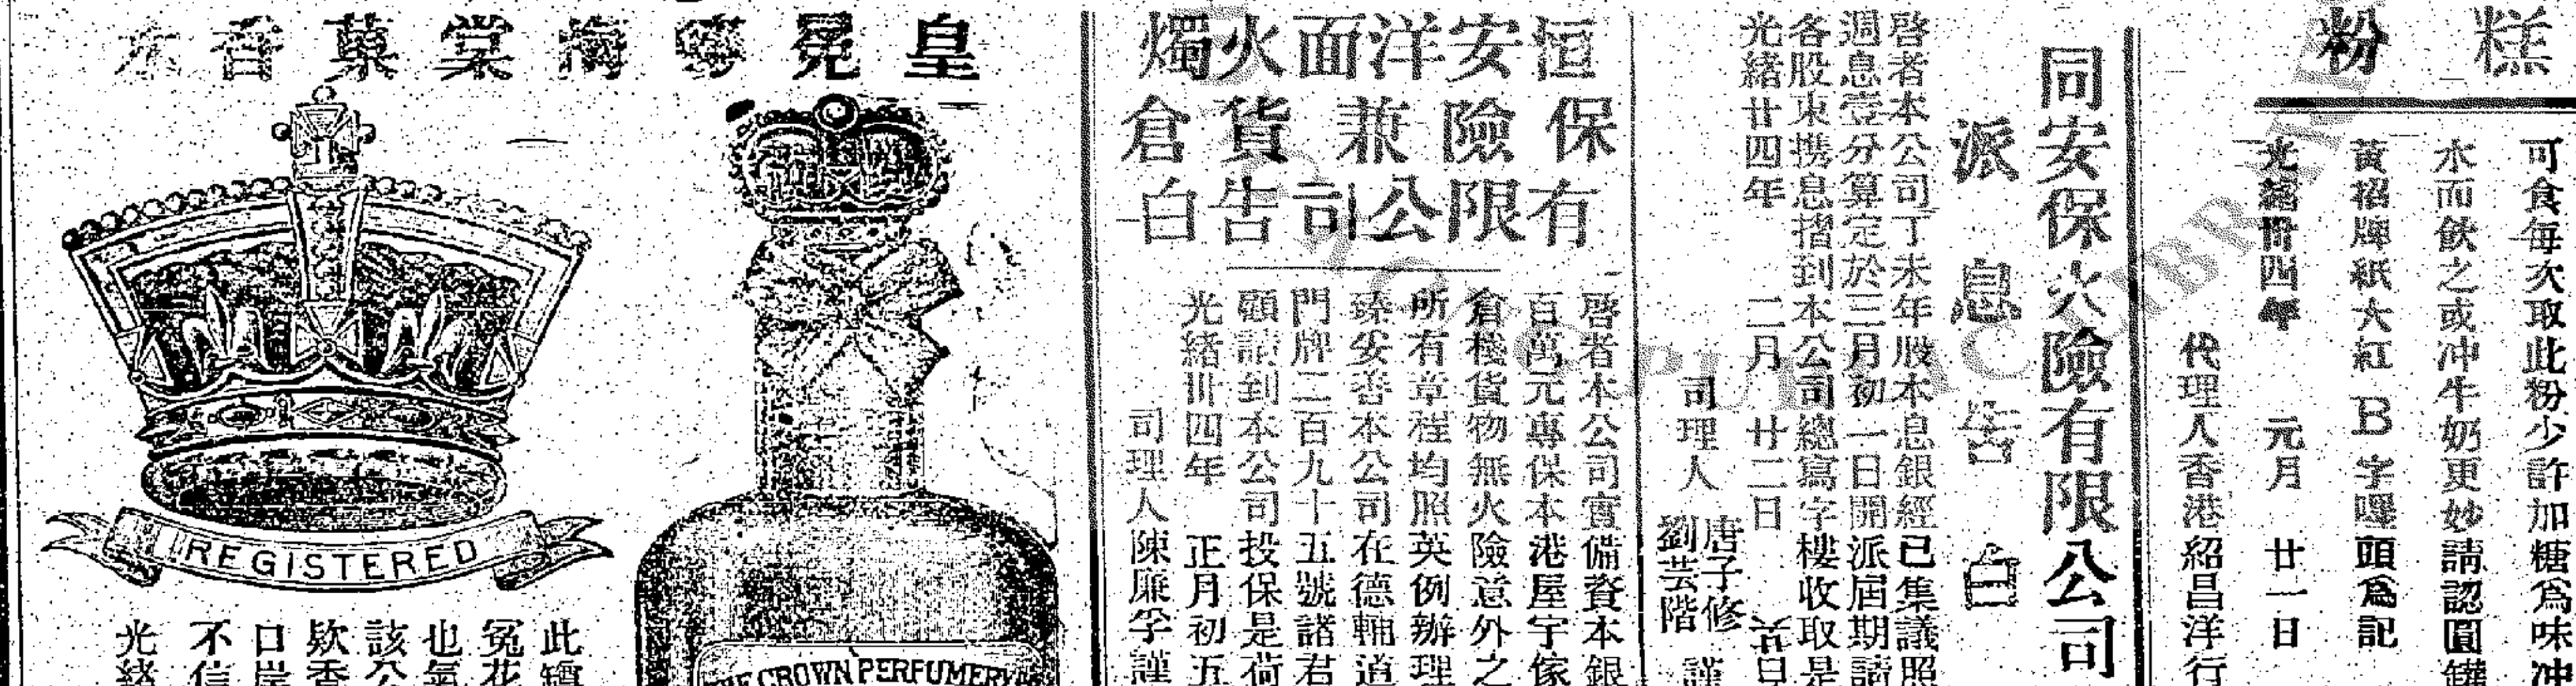 糕粉
可食每次取此粉少許加糖爲味冲
水而飲之或冲牛奶更妙請認圓罐
黃招牌紙大紅B字嘜頭爲記
光緒卅四年 元月 廿一日
代理人香港紹昌洋行
同安保火險有限公司
派息告白
啓者本公司丁未年股本息銀經已集議照
週息壹分算定於三月初一日開派屆期請
各股東携息摺到本公司總寫字樓收取是
光緒廿四年 二月 廿二日
司理人 唐子修 劉芸階 謹
恒安洋面火燭
保險兼貨倉
有限公司告白
啓者本公司實備資本銀
百萬元專保本港屋宇傢
倉棧貨物無火險意外之
所有章程均照英例辦理
臻妥善本公司在德輔道
門牌二百九十五號諸君
顧請到本公司投保是荷
光緒卅四年 正月初五
司理人陳廉孚謹
皇冕嘜海棠菓香水
REGISTERED
CROWN PERFUMERY
此罇
冕花
也氣
該公
欵香
口岸
不信
光緒